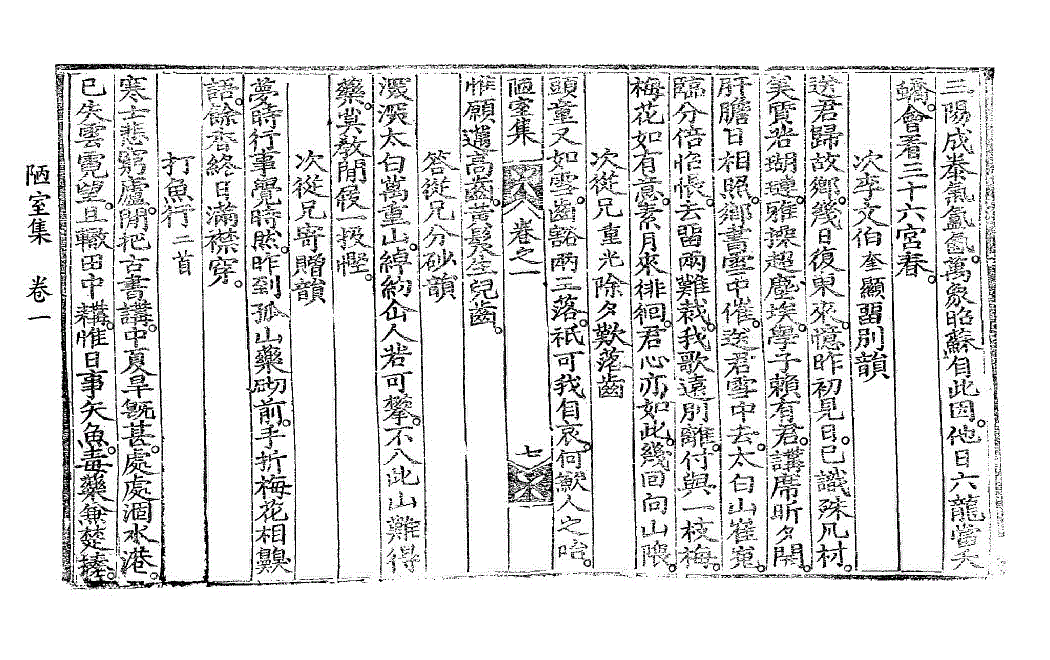 三陽成泰氣氤氳萬象昭蘇自此因他日六龍當天
蟜會看三十六宮春
次李文伯奎顯留別韻
送君歸故鄉幾日復東來憶昨初見日已識殊凡材
美質若瑚璉雅操超塵埃學子賴有君講席昕夕開
肝膽日相照鄉書雪中催送君雪中去太白山崔嵬
臨分倍悵悵去留兩難裁我歌遠別離付與一枝梅
梅花如有意素月來徘徊君心亦如此幾回向山隈
次從兄重光除夕歎落齒
頭童又如雪齒豁兩三落祇可我自哀何歟人之咍
陋室集 卷之一 七
惟願邁高齡黃髮生兒齒
答從兄分砂韻
深深太白萬重山綽約仚人若可攀不入此山難得
藥莫教閒後一扱慳
次從兄寄贈韻
夢時行事覺時然昨到孤山藥砌前手折梅花相齅
語餘香終日滿襟穿
打魚行二首
寒士悲窮廬閒把古書講中夏旱旣甚處處涸水港
已失雲霓望且轍田中耩惟日事矢魚毒藥兼楚搸
陋室集 卷一